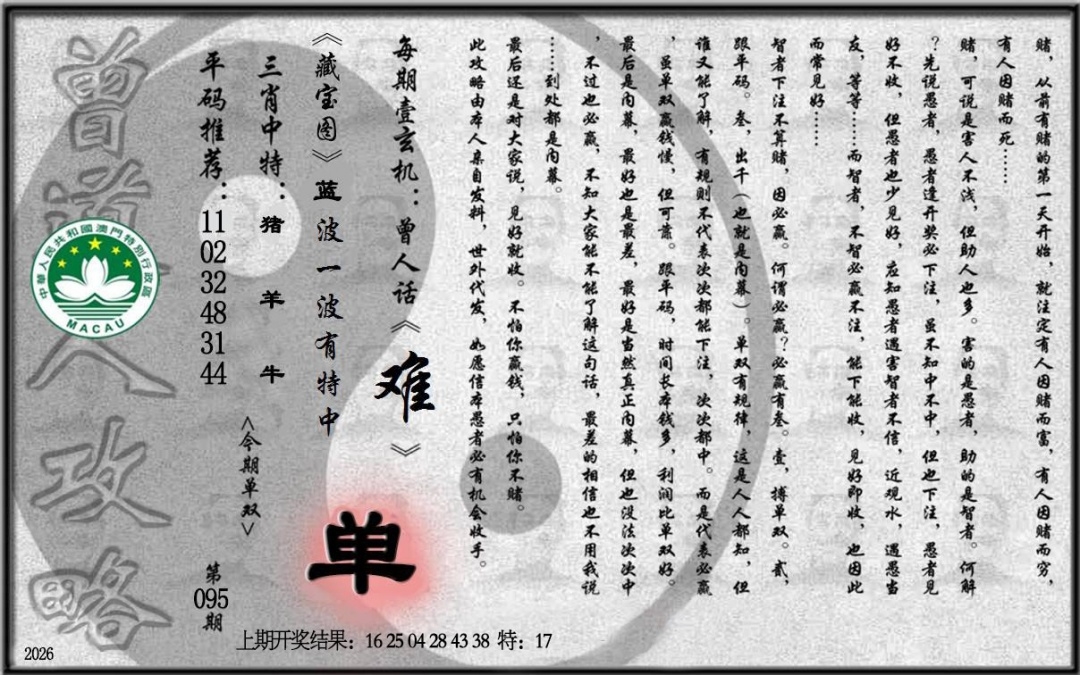 赌，从前有赌的第一天开始，就注定有人因赌而富，有人因赌而穷，
有人因赌而死……
赌，可说是害人不浅，但助人也多。害的是愚者，助的是智者。何解
？先说愚者，愚者逢开奖必下注，虽不知中不中，但也下注，愚者见
好不收，但愚者也少见好，应知愚者遇害智者不信，近观水，遇愚当
友，等等……而智者，不智必赢不注，能下能收，见好即收，也因此
而常见好……
智者下注不算赌，因必赢。何谓必赢？必赢有叁。壹，搏单双。贰，
跟平码。叁，出千（也就是内幕）。单双有规律，这是人人都知，但
谁又能了解，有规则不代表次次都能下注，次次都中。而是代表必赢
，虽单双赢钱慢，但可靠。跟平码，时间长本钱多，利润比单双好。
最后是内幕，最好也是最差，最好是当然真正内幕，但也没法次次中
，不过也必赢，不知大家能不能了解这句话，最差的相信也不用我说
……到处都是内幕。
最后还是对大家说，见好就收。不怕你赢钱，只怕你不赌。
此攻略由本人亲自发料，世外代发，如愿信本愚者必有机会收手。
每期壹玄机：曾人话《难》
《藏宝图》蓝波一波有特中
单
三肖中特：猪 羊 牛
<今期单双>
平码推荐：11 02 32 48 31 44
第095期
曾道人攻略
中華人民共和國澳門特別行政區
MACAU
上期开奖结果：16 25 04 28 43 38 特：17
2026